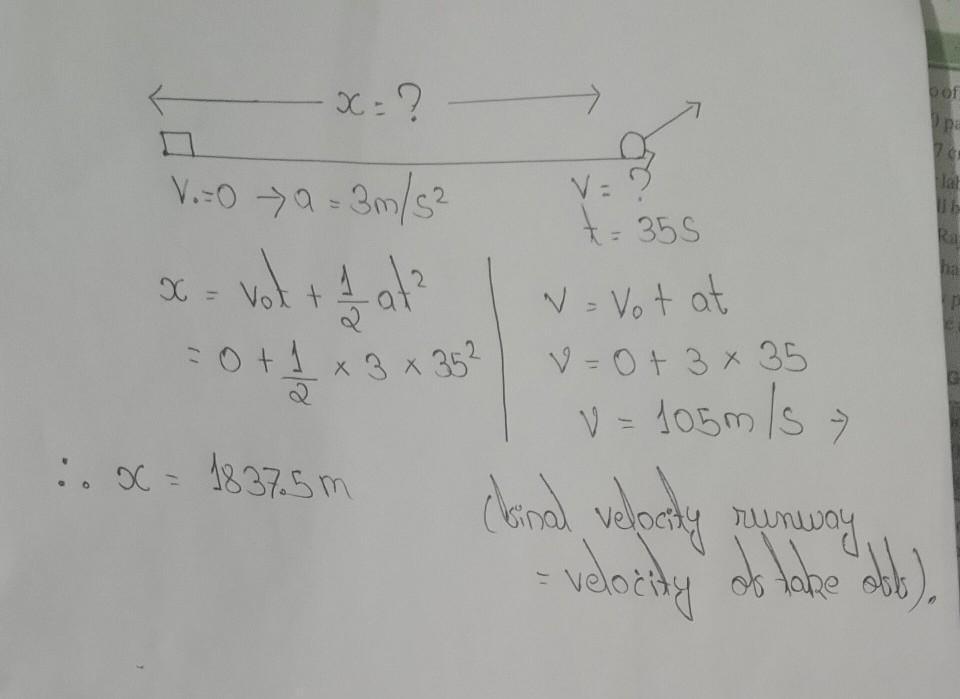 x = ?
V₀=0 → a = 3m/s²
v = ?
t = 35s
x = v₀t + 1/2 at²
= 0 + 1/2 × 3 × 35²
∴ x = 1837.5m
v = v₀ + at
v = 0 + 3 × 35
v = 105m/s →
(final velocity runway
= velocity of take off).